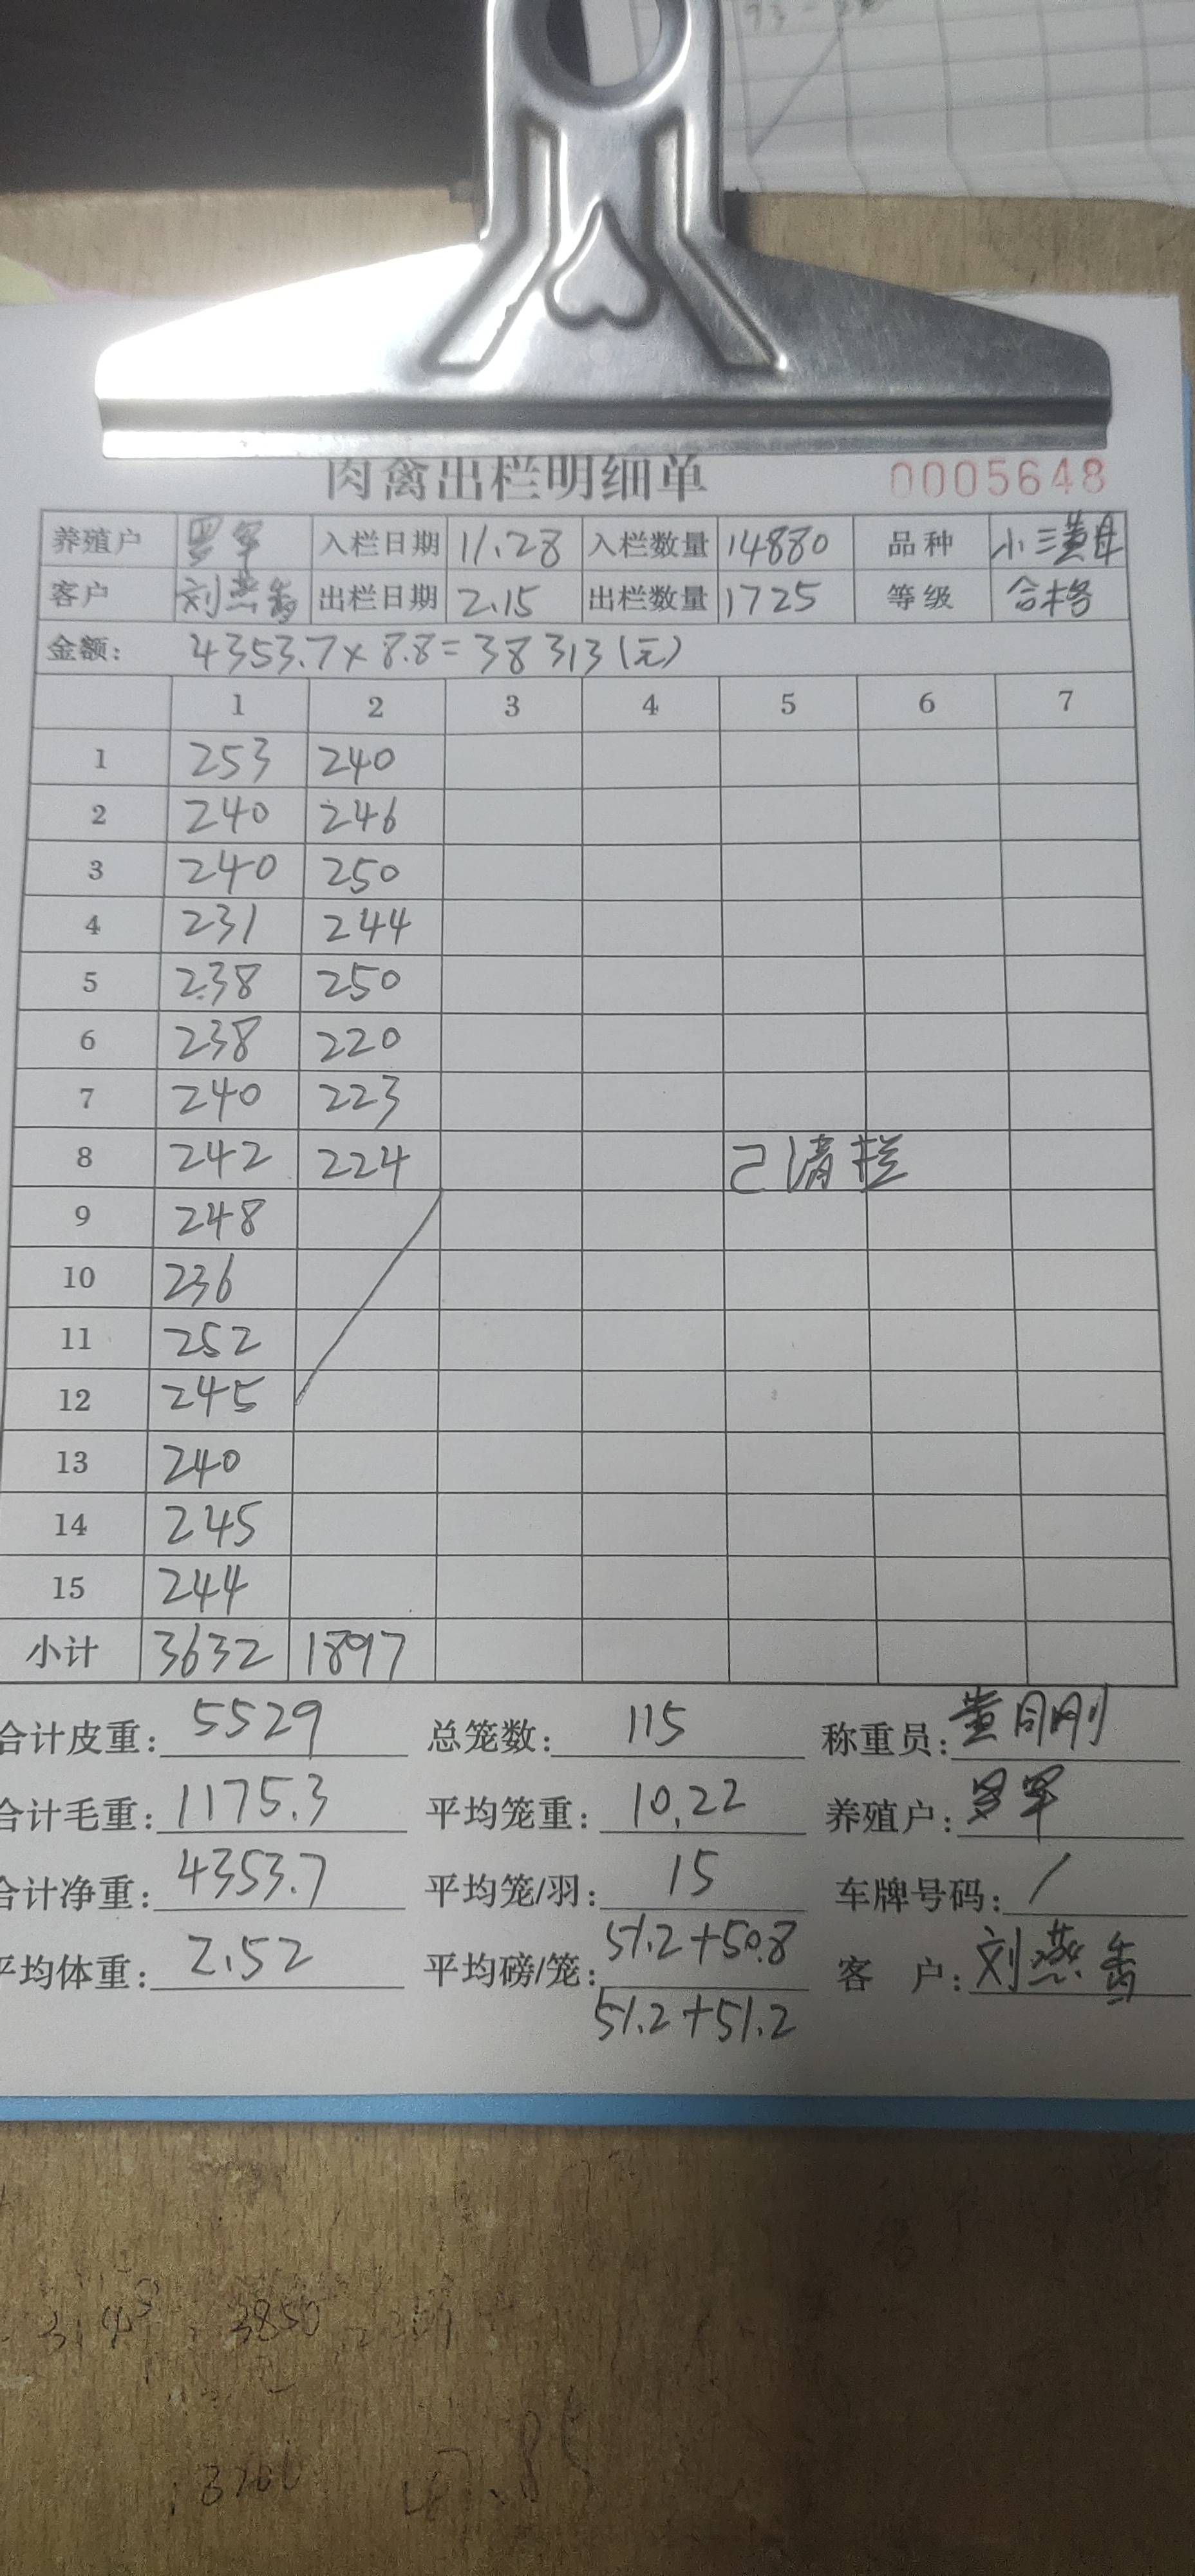 肉禽出栏明细单 0005648
养殖户 罗军 入栏日期 11.28 入栏数量 14880 品种 小三黄母
客户 刘燕香 出栏日期 2.15 出栏数量 1725 等级 合格
金额: 4353.7×8.8=38313(元)
1 2 3 4 5 6 7
1 253 240
2 240 246
3 240 250
4 231 244
5 238 250
6 238 220
7 240 223
8 242 224 已清栏
9 248
10 236
11 252
12 245
13 240
14 245
15 244
小计 3632 1897
合计皮重: 5529 总笼数: 115 称重员: 黄刚
合计毛重: 1175.3 平均笼重: 10.22 养殖户: 罗军
合计净重: 4353.7 平均笼/羽: 15 车牌号码: /
平均体重: 2.52 平均磅/笼: 51.2+50.8 客 户: 刘燕香
51.2+51.2